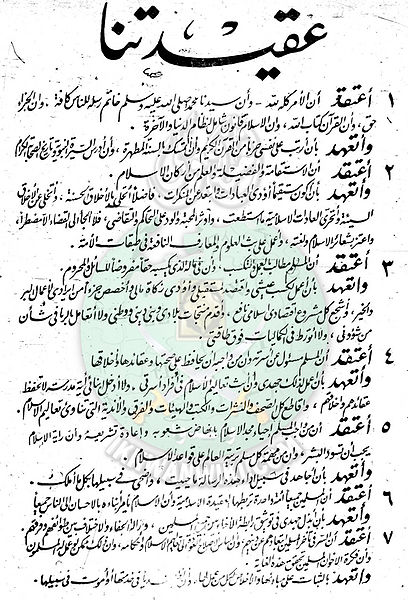 عقيدتنا
١ أعتقد أن الأمر كله لله - وأن سيدنا محمد صلى الله عليه وسلم خاتم رسله للناس كافة، وأن الجزاء
حق، وأن القرآن كتاب الله، وأن الإسلام قانون شامل لنظام الدنيا والآخرة.
وأتعهد بأن أرتب على نفسى جزءا من القرآن الكريم وأن أتمسك بالسنة المطهرة، وأن أدرس السيرة النبوية وتاريخ الصحابة الكرام
٢ أعتقد أن الاستقامة والفضيلة والعلم من أركان الإسلام.
وأتعهد بأن أكون مستقيما أؤدى العبادات وأبتعد عن المنكرات، فاضلا أتحلى بالأخلاق الحسنة، وأتخلى عن الأخلاق
السيئة وأتحرى العادات الإسلامية ما استطعت، وأوثر المحبة والود على التحاكم والتقاضى، فلا ألجأ إلى القضاء إلا مضطرا،
وأعتز بشعائر الإسلام ولغته، وأعمل على بث العلوم والمعارف النافعة فى طبقات الأمة.
٣ أعتقد أن المسلم مطالب بالعمل والتكسب، وأن فى ماله الذى يكسبه حقا مفروضا للسائل والمحروم.
وأتعهد بأن أعمل لكسب عيشى وأقتصد لمستقبلى وأؤدى زكاة مالى وأخصص جزءا من إيرادى لأعمال البر
والخير، وأشجع كل مشروع اقتصادى إسلامى نافع، وأقدم منتجات بلادى وبنى دينى ووطنى ولا أتعامل بالربا فى شأن
من شؤونى، ولا أتورط فى الكماليات فوق طاقتى.
٤ أعتقد أن المسلم مسئول عن أسرته وأن من واجبه أن يحافظ على صحتها وعقائدها وأخلاقها
وأتعهد بأن أعمل لذلك جهدى وأن أبث تعاليم الإسلام فى أفراد أسرتى، ولا أدخل أبنائى أية مدرسة لا تحفظ
عقائدهم وأخلاقهم، وأقاطع كل الصحف والنشرات والكتب والهيئات والفرق والأندية التى تناوئ تعاليم الإسلام.
٥ أعتقد أن من واجب المسلم إحياء مجد الإسلام بإنهاض شعوبه وإعادة تشريعه وأن راية الإسلام
يجب أن تسود البشر، وأن من مهمة كل مسلم تربية العالم على قواعد الإسلام
وأتعهد بأن أجاهد فى سبيل أداء هذه الرسالة ما حييت، وأضحى فى سبيلها بكل ما أملك.
٦ أعتقد أن المسلمين جميعا أمة واحدة تربطها العقيدة الإسلامية وأن الإسلام يأمر أبناءه بالإحسان إلى الناس جميعا
وأتعهد بأن أبذل جهدى فى توثيق رابطة الإخاء بين جميع المسلمين، وإزالة الجفاء والاختلاف بين طوائفهم وفرقهم.
٧ أعتقد أن السر فى تأخر المسلمين ابتعادهم عن دينهم، وأن أساس الإصلاح العودة إلى تعاليم الإسلام وأحكامه، وأن ذلك ممكن لو عمل له المسلمون
وأن فكرة الإخوان المسلمين تحقق هذه الغاية.
وأتعهد بالثبات على مبادئها والإخلاص لكل من عمل لها، وأن أظل جنديا فى خدمتها أو أموت فى سبيلها.